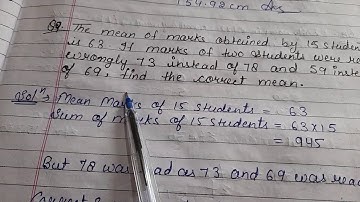 154.92 cm
Q9. The mean of marks obtained by 15 students
is 63. If marks of two students were re
wrongly 73 instead of 78 and 59 inste
of 69, find the correct mean.
Solⁿ, Mean Marks of 15 students = 63
Sum of marks of 15 students = 63×15
= 945
But 78 was ad as 73 and 69 was rea